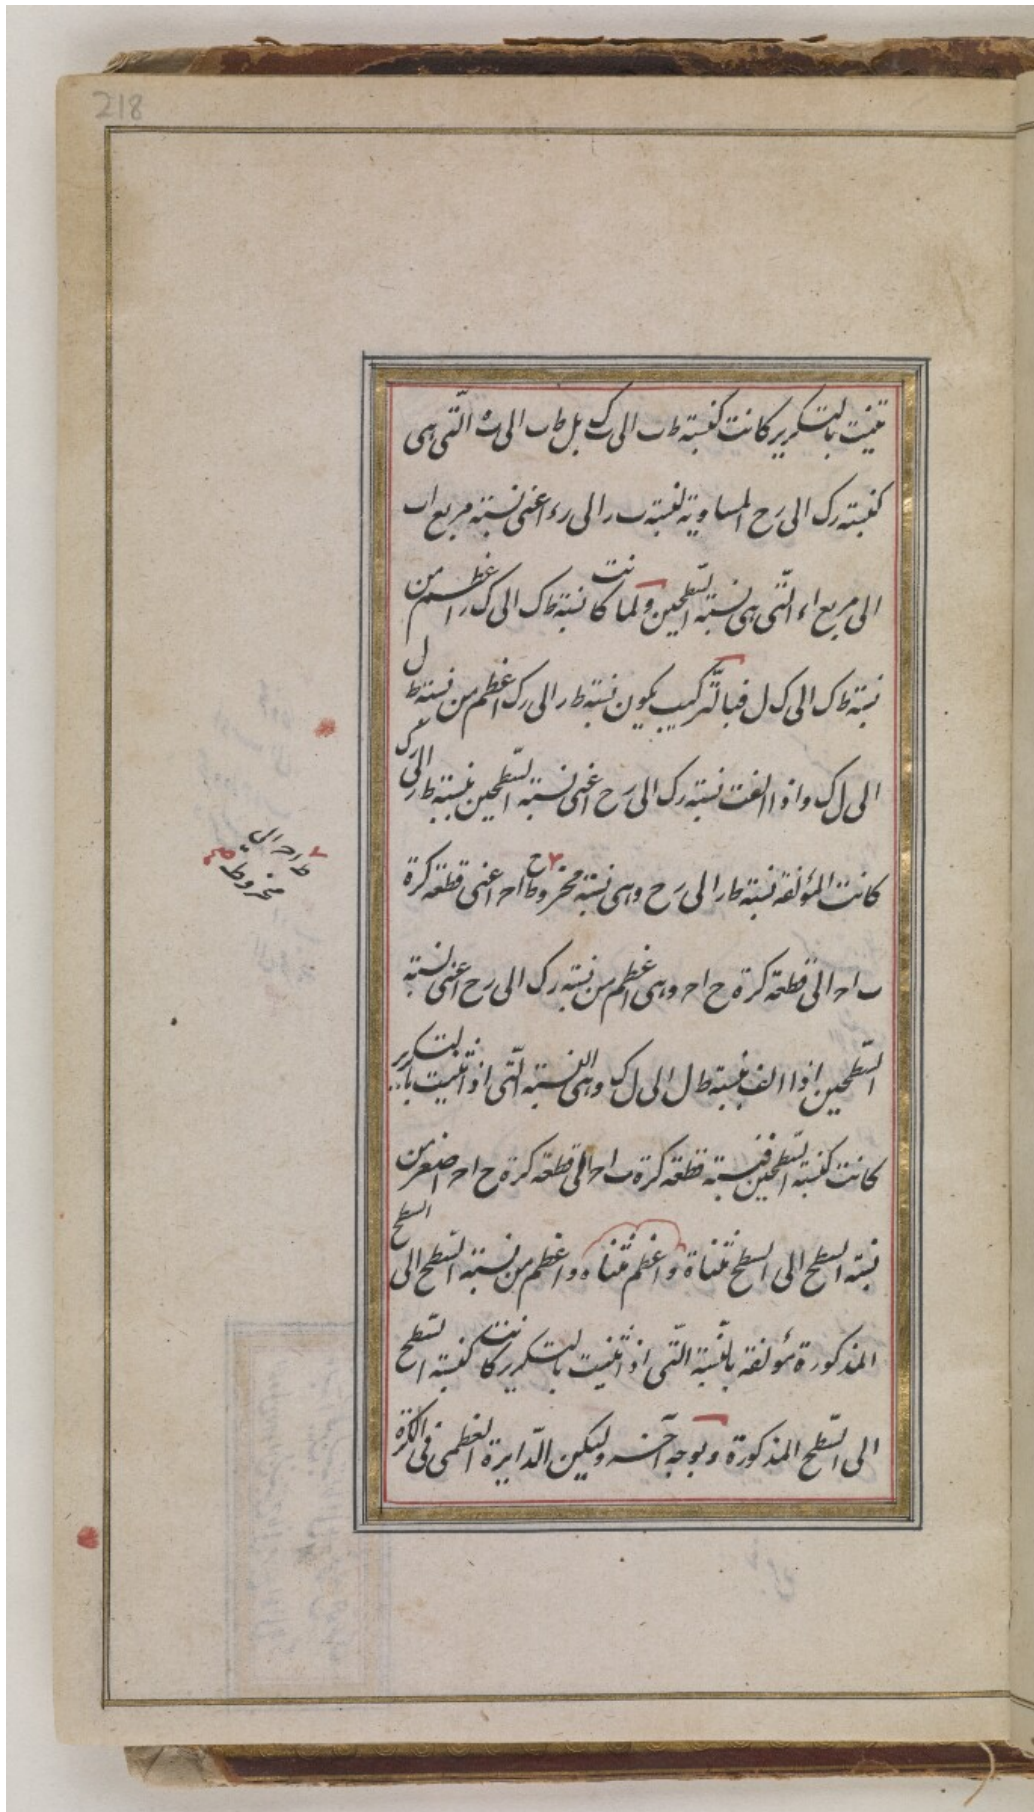 218
ثنيت بالتكرير كانت كنسبة ط ب الى ب ك بل ط ب الى ب ه التى هى
كنسبة ر ك الى ر ح المساوية لنسبة ب ر الى ر ء اعنى نسبة مربع ا ب
الى مربع ا ء التى هى نسبة السطحين ولما كانت نسبة ط ك الى ك ر اعظم من
نسبة ط ك الى ك ل فبالتركيب يكون نسبة ط ر الى ر ك اعظم من نسبة ط ل
الى ل ك واذا الفت نسبة ر ك الى ر ح اعنى نسبة السطحين بنسبة ط ر الى ر ك
كانت المؤلفة نسبة ط ر الى ر ح وهى نسبة مخروط ح ا ح اعنى قطعة كرة
ط ا ح الى
مخروط صح
ب ا ح الى قطعة كرة ح ا ح وهى اعظم من نسبة ر ك الى ر ح اعنى نسبة
السطحين اذا الف بنسبة ط ل الى ل ك وهى النسبة التى اذا ثنيت بالتكرير
كانت كنسبة السطحين فنسبة قطعة كرة ب ا ح الى قطعة كرة ح ا ح اصغر من
نسبة السطح الى السطح مثناة واعظم مثناه واعظم من نسبة السطح الى السطح
المذكورة مؤلفة بالنسبة التى اذا ثنيت بالتكرير كانت كنسبة السطح
الى السطح المذكورة وبوجه آخر وليكن الدايرة العظمى فى الكرة